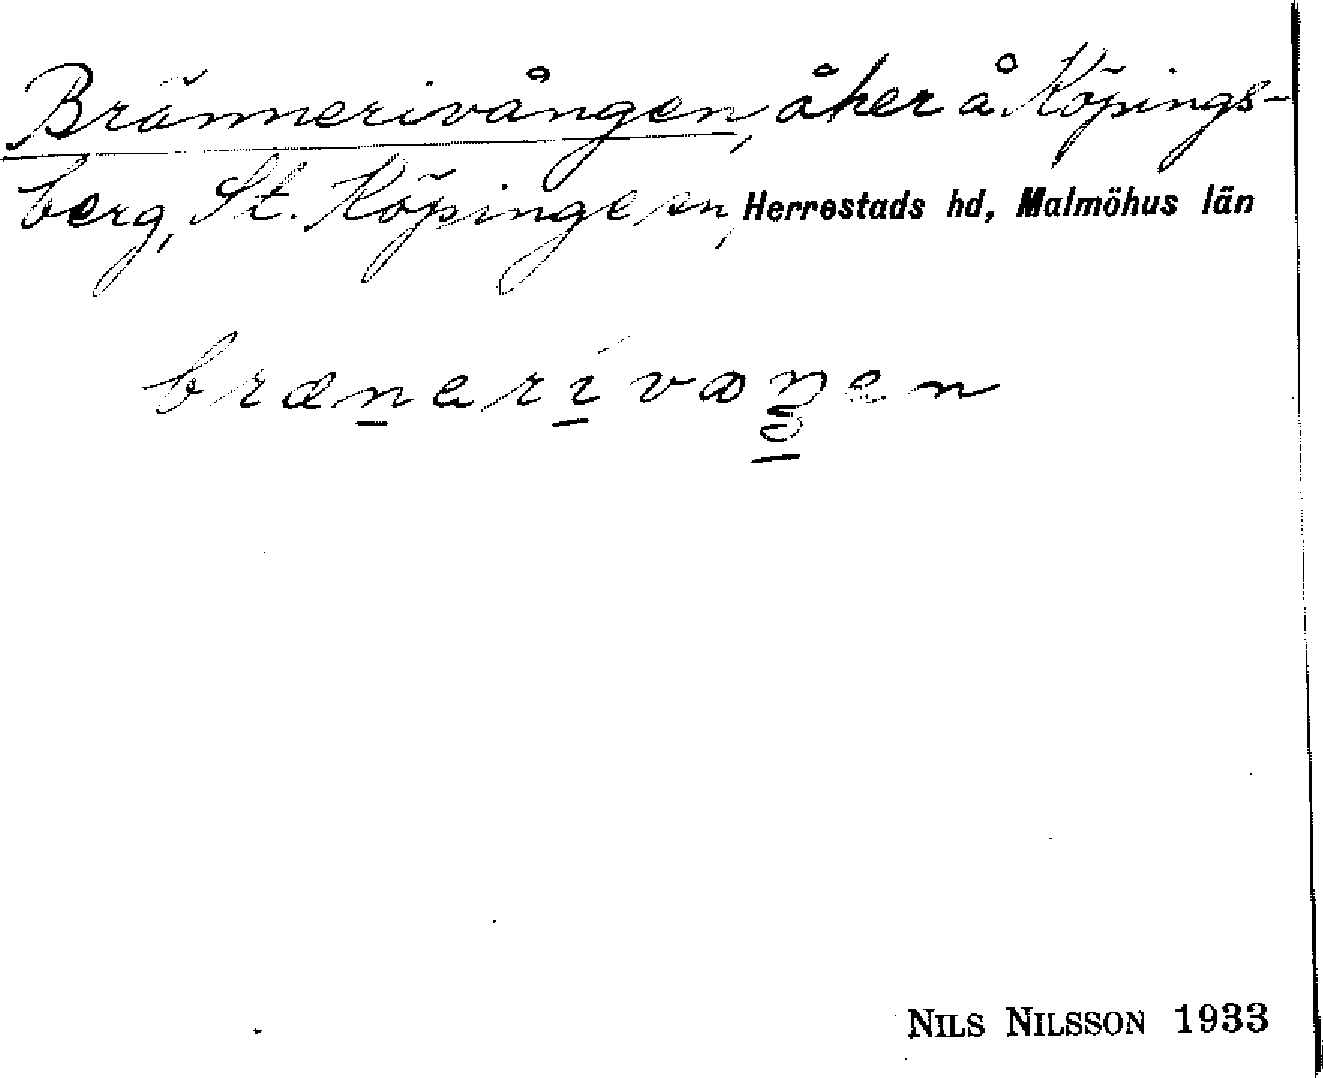 Brännerivången, åker å Köpings-
berg, St. Köpinge sn, Herrestads hd, Malmöhus län
brænerivaŋen
NILS NILSSON 1933